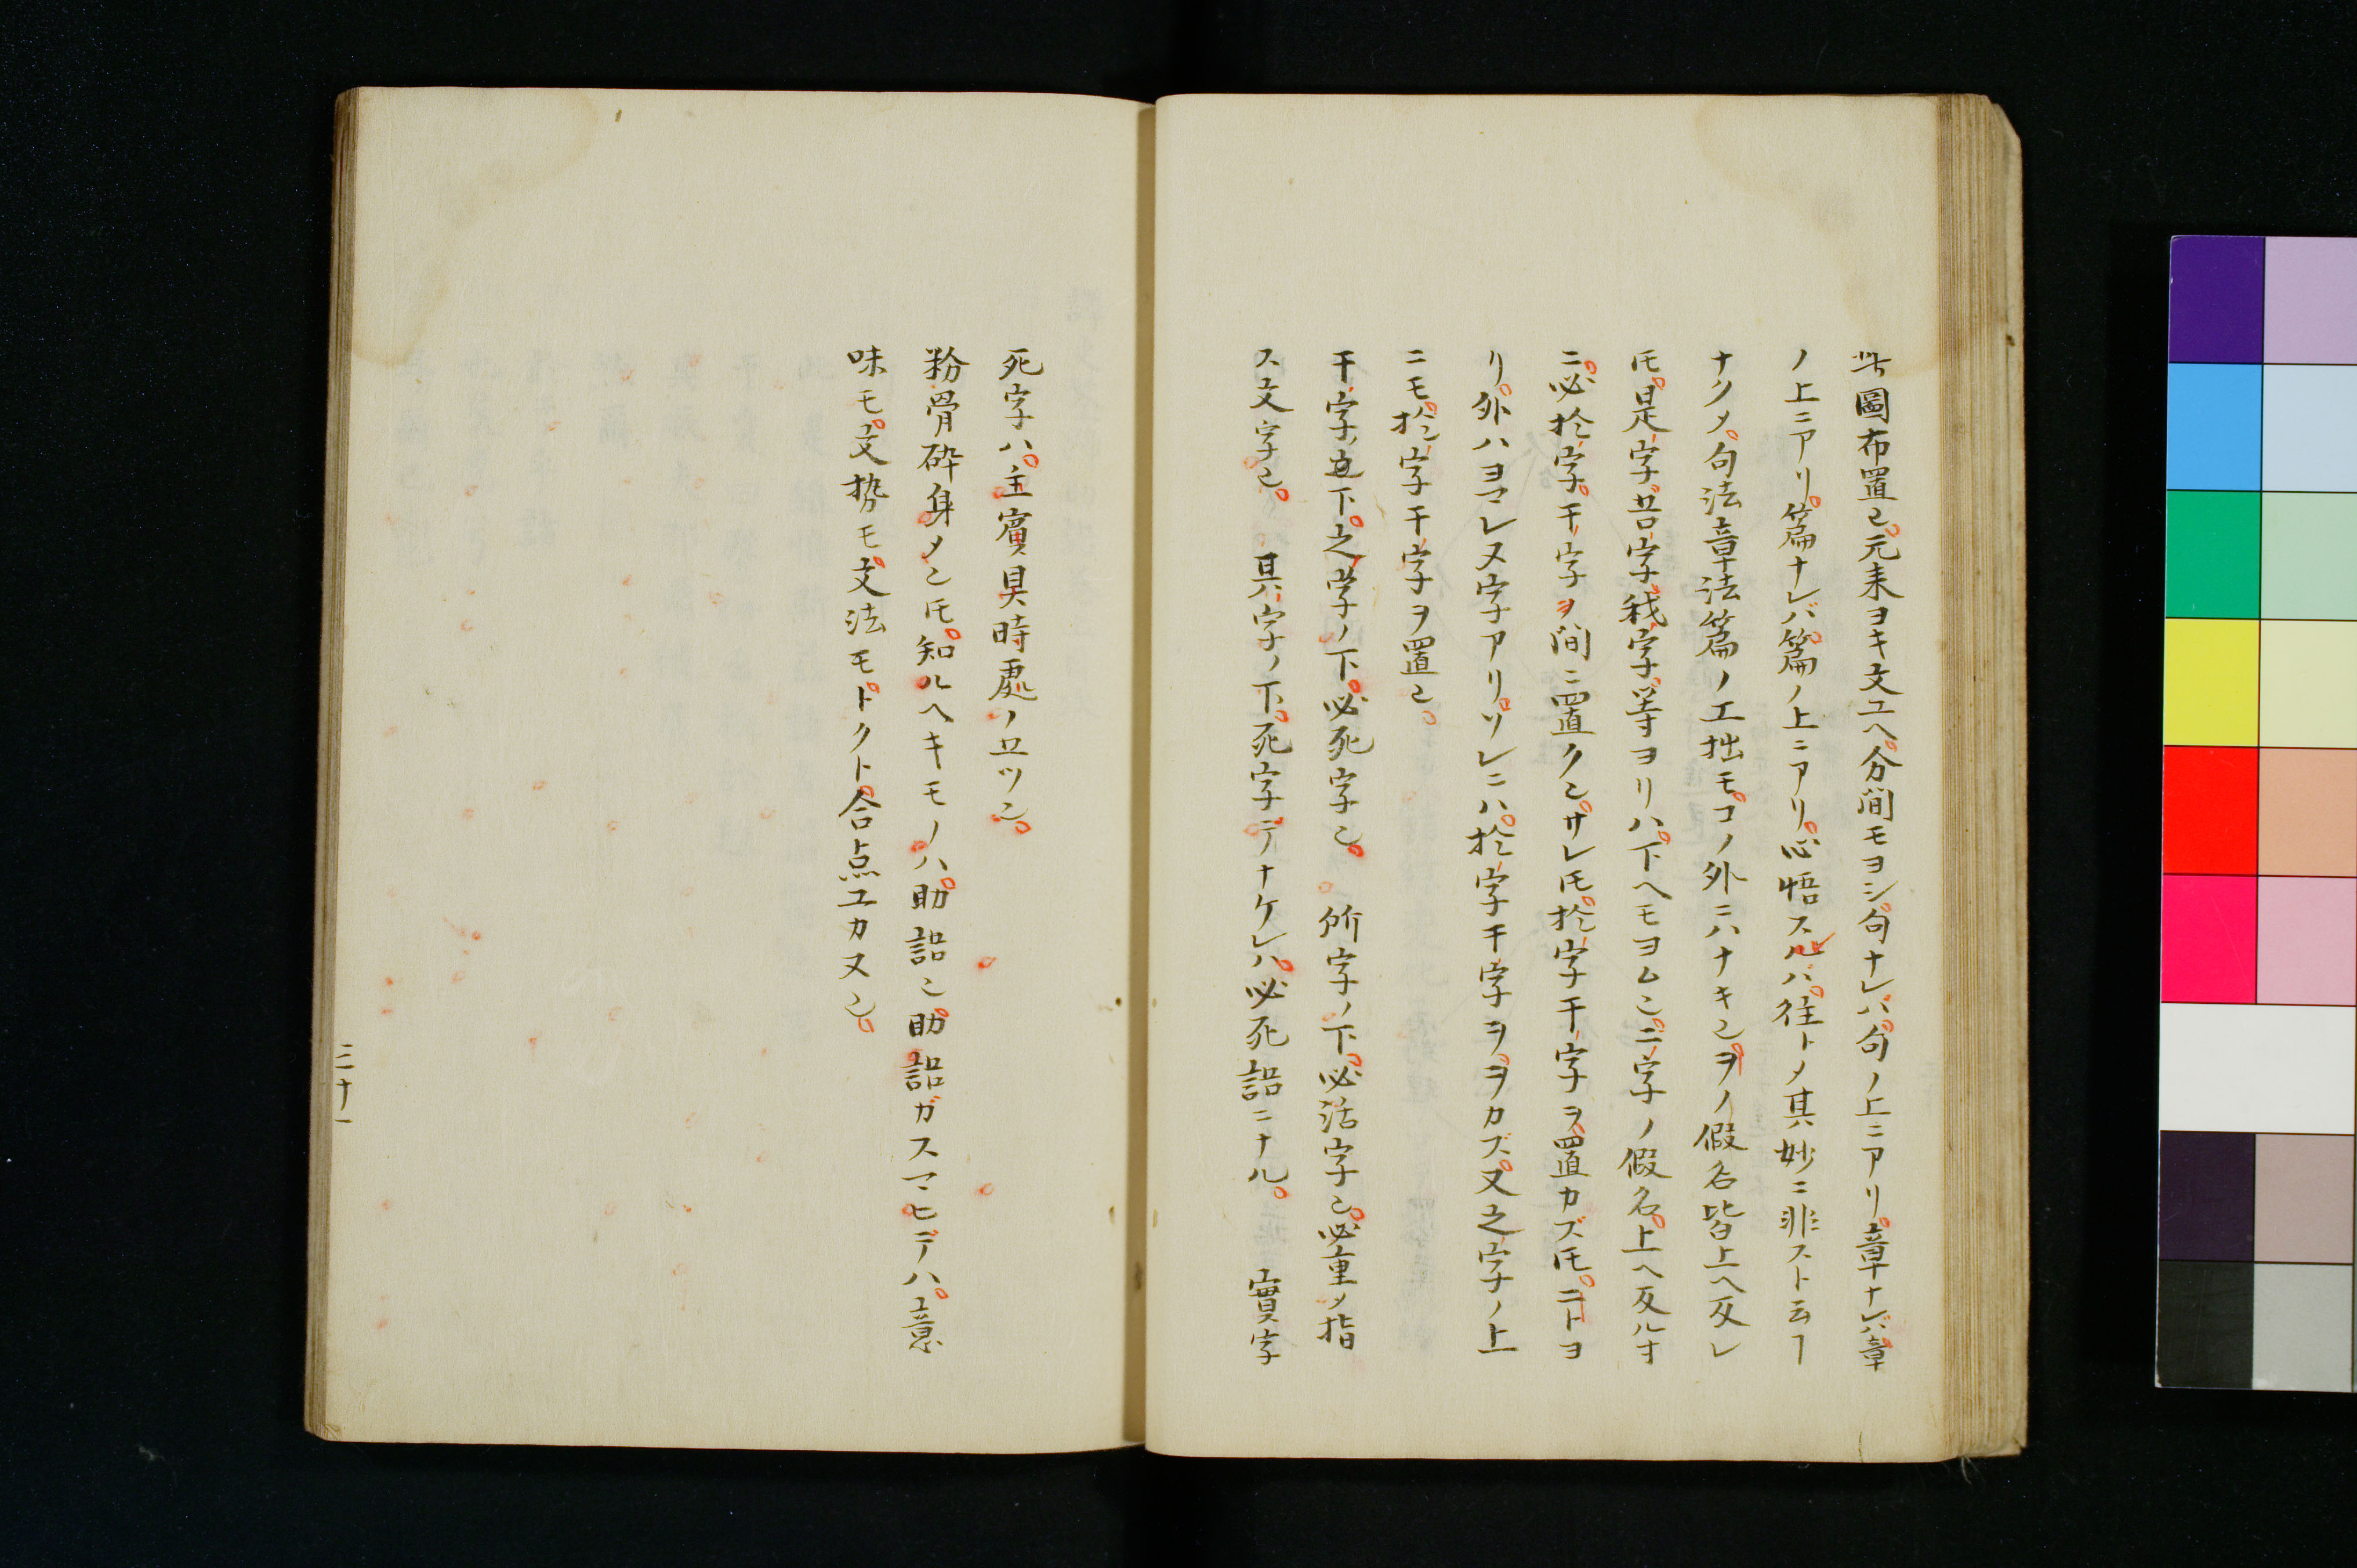 此圖布置也。元来ヨキ文ユヘ。分間モヨシ。句ナレバ。句ノ上ニアリ。章ナレバ。章
ノ上ニアリ。篇ナレバ。篇ノ上ニアリ。心悟スレバ。往トメ其妙ニ非スト云ヿ
ナクメ。句法章法篇ノ工拙モ。コノ外ニハナキ也。ヲノ假名皆上ヘ反レ
𪜈。是字。吾字。我字。等ヨリハ。下ヘモヨム也。ニ字ノ假名。上ヘ反ルオ
ニ。必於字。于字ヲ間ニ置ク也。サレ𪜈。於字于字ヲ置カズ𪜈。ニトヨ
リ。外ハヨマレヌ字アリ。ソレニハ。於字于字ヲ。ヲカズ。又之字ノ上
ニモ。於字于字ヲ置也。
于字。並下。之字ノ下。必死字也。 所字ノ下。必活字也。必重メ指
ス文字也。 其字ノ下。死字デナケレハ。必死語ニナル。 實字
死字ハ。主賓與時處ノ立ツ也。
粉骨砕身メ也𪜈。知ルヘキモノハ。助語也。助語ガスマヒデハ。意
味モ。文勢モ。文法モ。トクト合点ユカヌ也。
三十一